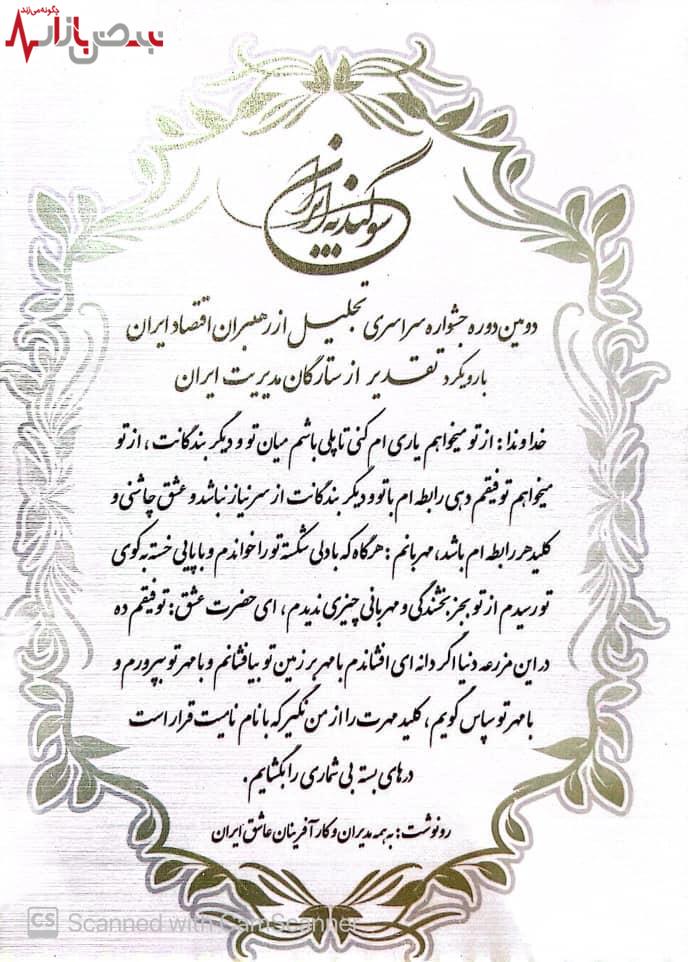 چگونه می‌زند
نبض بازار
سوگند به ایران
دومین دوره جشنواره سراسری تجلیل از رهبران اقتصاد ایران
با رویکرد تقدیر از ستارگان مدیریت ایران
خداوندا : از تو میخواهم یاری ام کنی تا پلی باشم میان تو و دیگر بندگانت ، از تو
میخواهم توفیقم دهی رابطه ام با تو و دیگر بندگانت از سر نیاز نباشد و عشق چاشنی و
کلید هر رابطه ام باشد، مهربانم : هرگاه که با دلی شکسته تو را خواندم و با پایی خسته به کوی
تو رسیدم از تو بجز بخشندگی و مهربانی چیزی ندیدم ، ای حضرت عشق : توفیقم ده
در این مزرعه دنیا اگر دانه ای افشاندم با مهر بر زمین تو بیافشانم و با مهر تو بپرورم و
با مهر تو سپاس گویم ، کلید مهرت را از من نگیر که با نام نامیت قرار است
درهای بسته بی شماری را بگشایم .
رونوشت : به همه مدیران و کارآفرینان عاشق ایران
CS Scanned with CamScanner